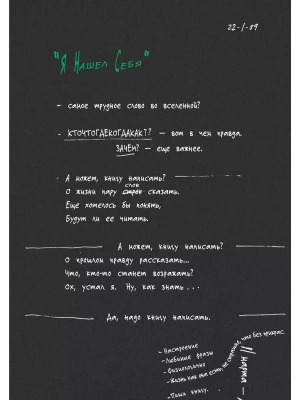 22-1-89
"Я Нашел Себя"
- самое трудное слово во вселенной?
- КТОЧТОГДЕКОГДАКАК?? — вот в чем правда.
ЗАЧЕМ? — еще важнее.
- А может, книгу написать?
слов
О жизни пару строк сказать.
Еще хотелось бы понять,
Будут ли ее читать.
А может, книгу написать?
О прошлом правду рассказать...
Что, кто-то станет возражать?
Ох, устал я. Ну, как знать...
Да, надо книгу написать.
- Настроение
- Любимые фразы
- Физиология
- Жизнь как она есть, не страшно, что без прикрас.
- Пиши книгу.
11 марта —